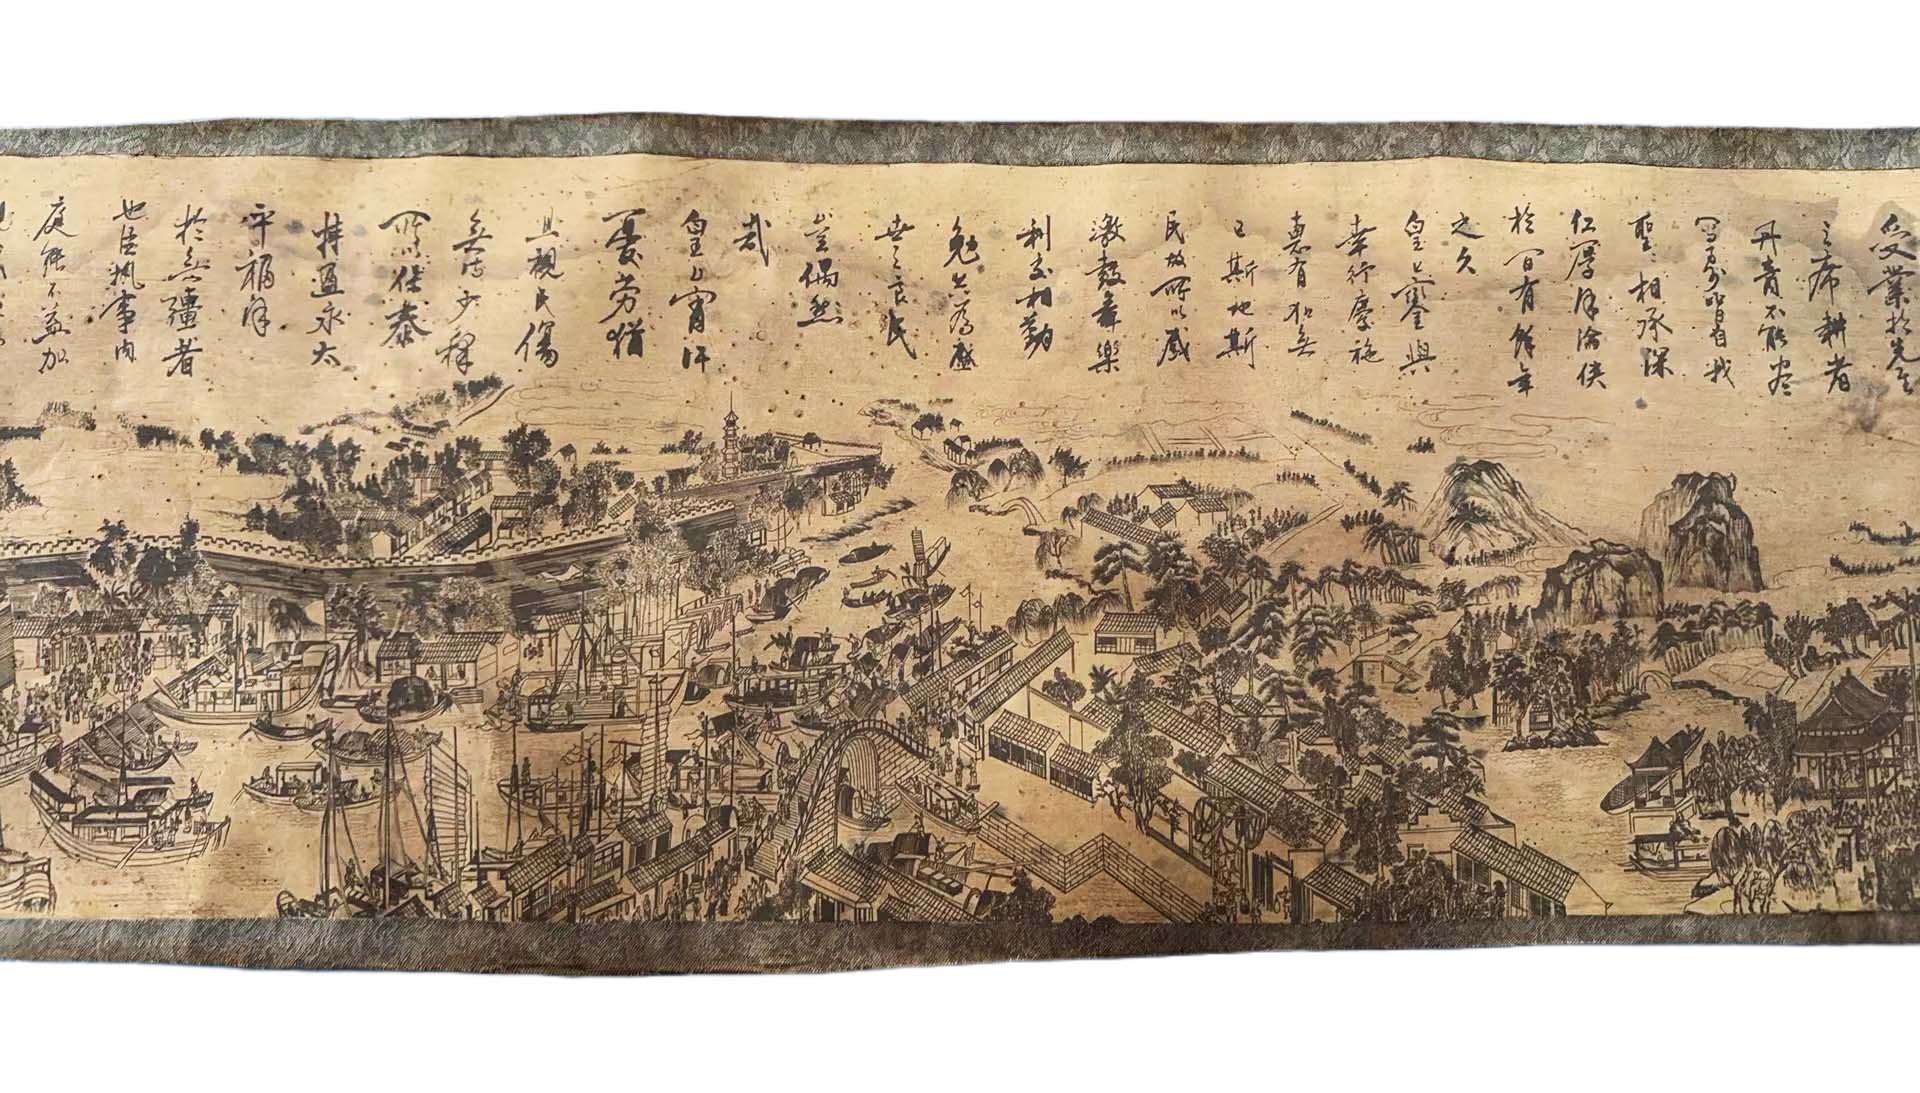 受業於先生
之席耕者
丹青不能盡
寫者皆自我
聖聖相承深
仁厚澤淪浹
於百有餘年
之久
皇上鑾輿
幸行慶施
惠有加無
已斯地斯
民故所以感
激鼓舞樂
利交相勸
勉共為盛
世之良民
豈偶然
哉
皇上宵旰
憂勞猶
且視民傷
無 少釋
所以保泰
持盈永太
平福澤
於無疆者
也臣執事內
庭能不益加